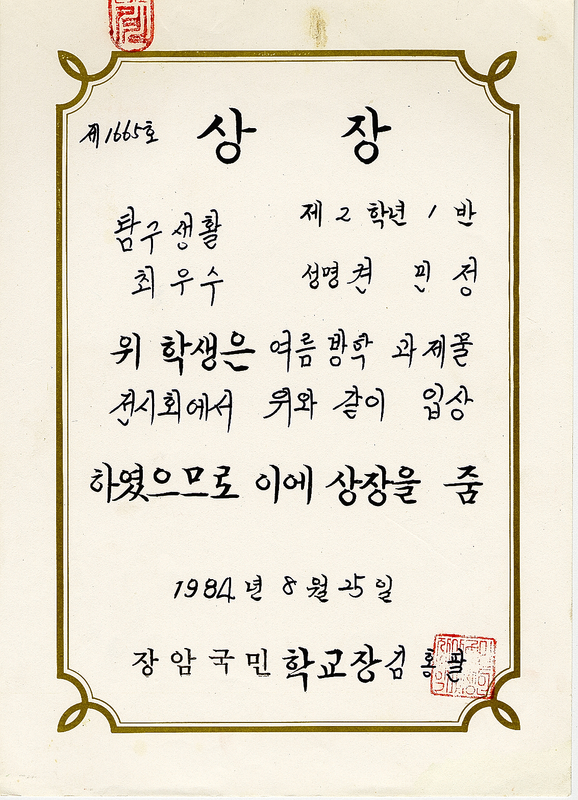 제1665호 상장
탐구생활 제2학년 1반
최우수 성명 권민정
위 학생은 여름방학 과제물
전시회에서 위와 같이 입상
하였으므로 이에 상장을 줌
1984년 8월 25일
장암국민학교장 김홍팔